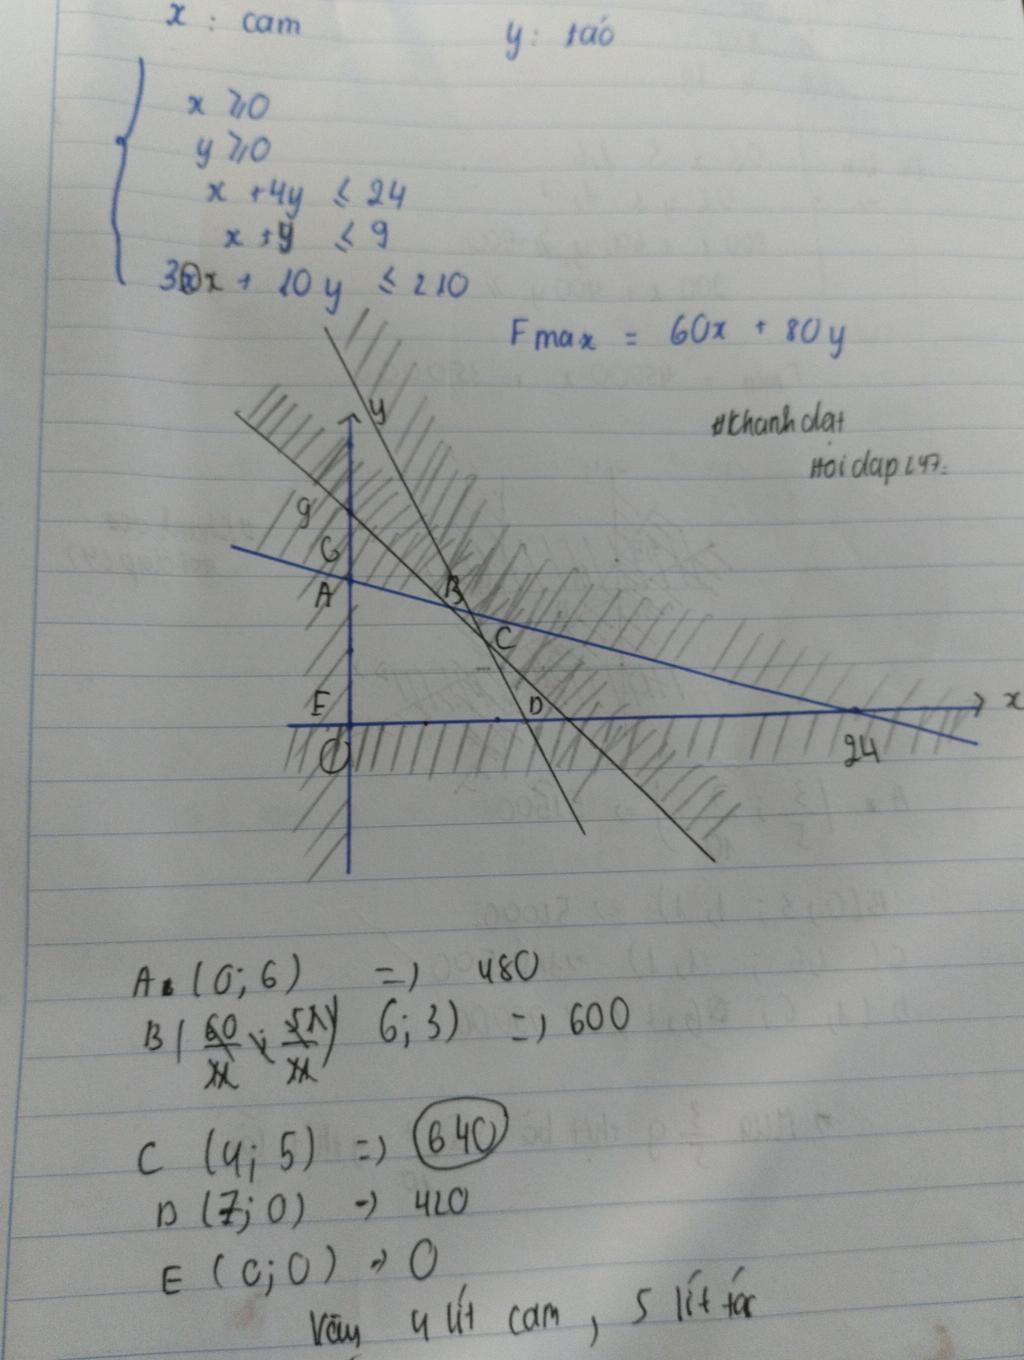 x : cam y : táo
x ≥ 0
y ≥ 0
x + 4y ≤ 24
x + y ≤ 9
30x + 10y ≤ 210
Fmax = 60x + 80y
#thanhdat
Hoidap247
y
9
6
A
B
C
E
D
x
O
24
A (0; 6) => 480
B ( 6; 3) => 600
C (4; 5) => 640
D (7; 0) -> 420
E (0; 0) -> 0
Vậy 4 lít cam, 5 lít táo